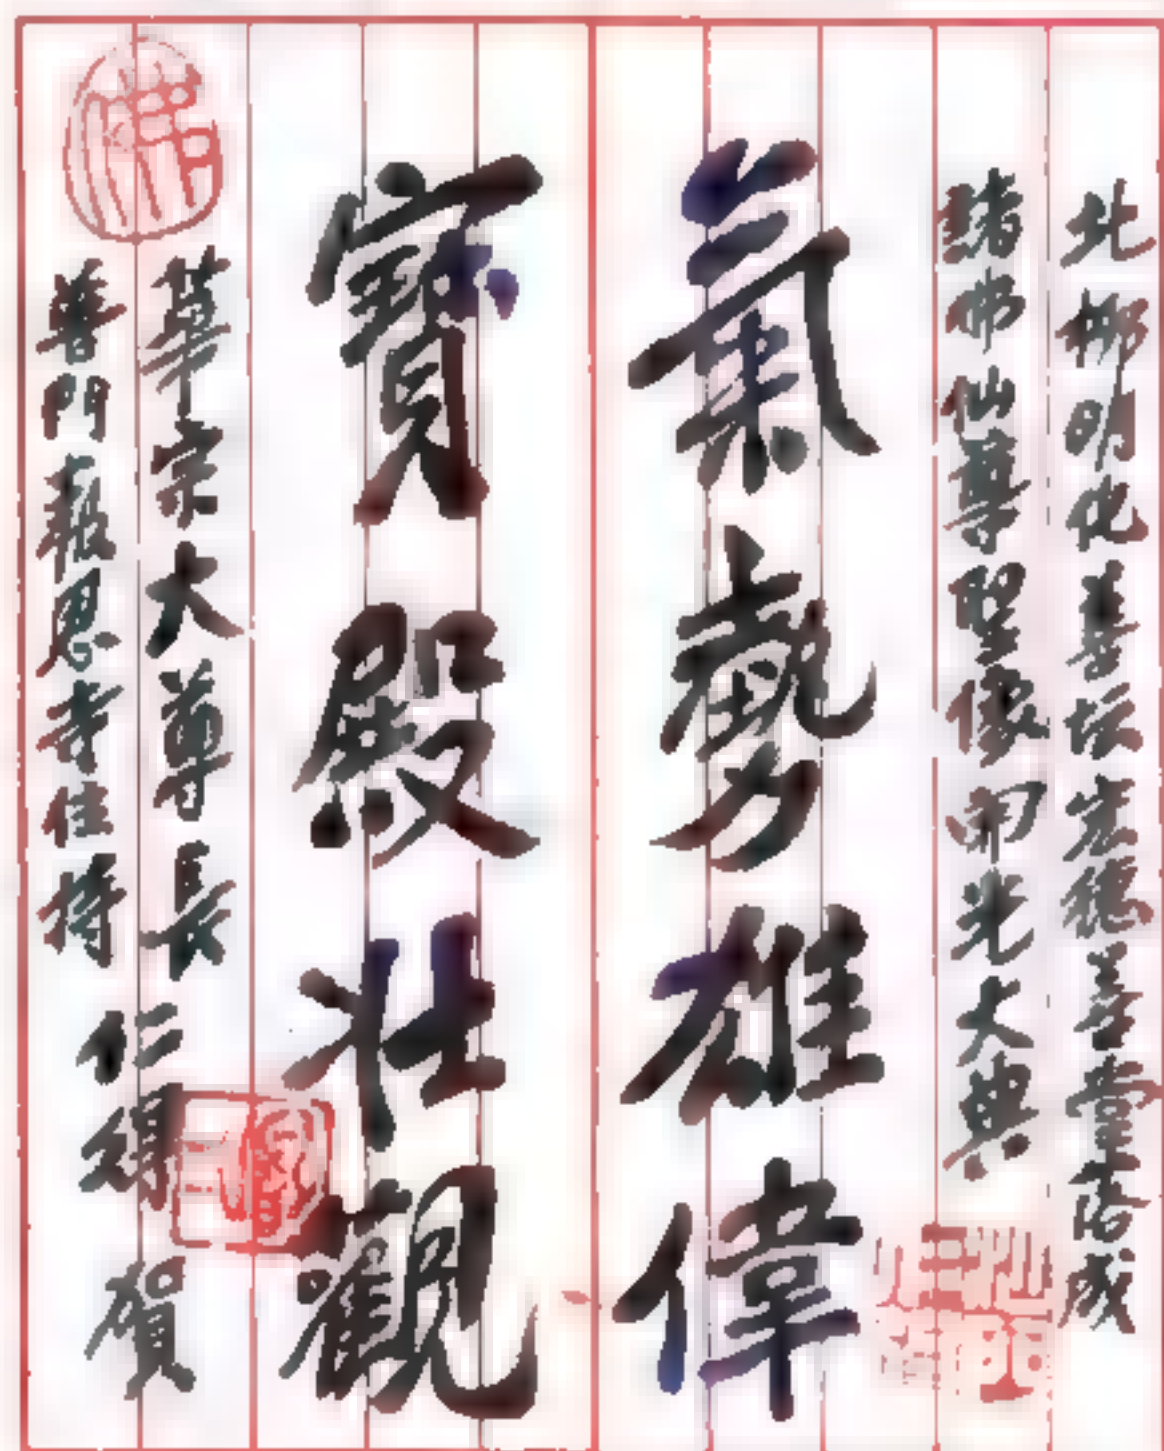 北柳明化善坛宏德善堂落成
諸佛仙尊聖像開光大典
氣勢雄偉
寶殿壯觀
華宗大尊長
普門報恩寺住持
仁得 賀
佛